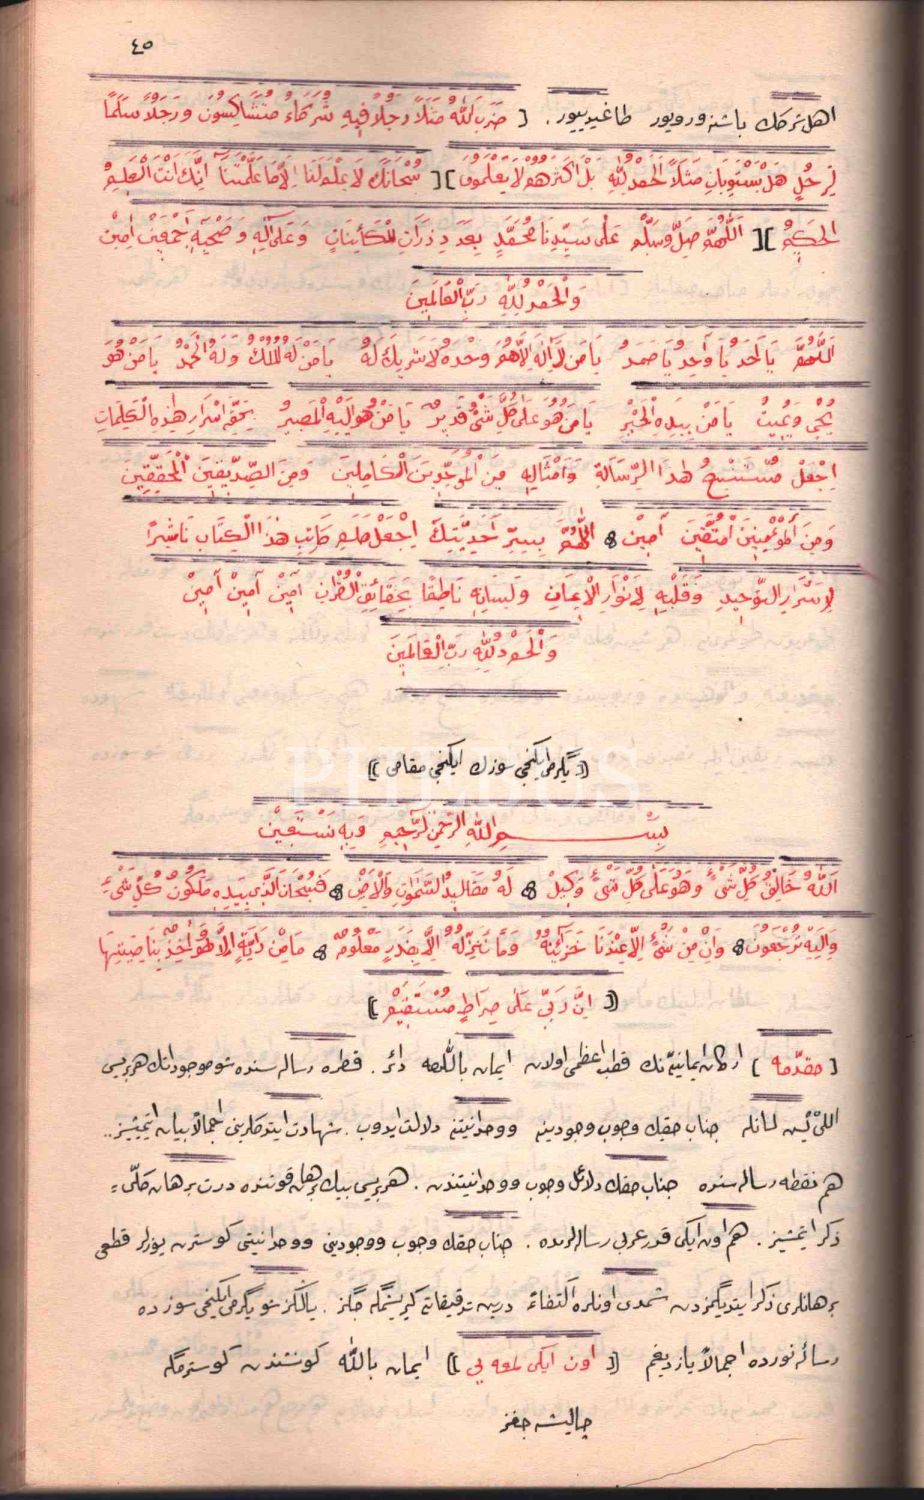 ٤٥
اهل شركك باشنه ورويور طاغيديیور. [ ضَرَبَ اللّٰهُ مَثَلًا رَجُلًا فِيهِ شُرَكَاءُ مُتَشَاكِسُونَ وَرَجُلًا سَلَمًا
لِرَجُلٍ هَلْ يَسْتَوِيَانِ مَثَلًا اَلْحَمْدُ لِلّٰهِ بَلْ اَكْثَرُهُمْ لَا يَعْلَمُونَ ] [ سُبْحَانَكَ لَا عِلْمَ لَنَا اِلَّا مَا عَلَّمْتَنَا اِنَّكَ اَنْتَ الْعَلِيمُ
الْحَكِيمُ ] [ اَللّٰهُمَّ صَلِّ وَسَلِّمْ عَلَى سَيِّدِنَا مُحَمَّدٍ بِعَدَدِ ذَرَّاتِ الْكَائِنَاتِ وَعَلَى آلِهِ وَصَحْبِهِ اَجْمَعِينَ اٰمِينْ
وَالْحَمْدُ لِلّٰهِ رَبِّ الْعَالَمِينَ
اَللّٰهُمَّ يَا اَحَدُ يَا وَاحِدُ يَا صَمَدُ يَا مَنْ لَا اِلٰهَ اِلَّا هُوَ وَحْدَهُ لَا شَرِيكَ لَهُ يَا مَنْ لَهُ الْمُلْكُ وَلَهُ الْحَمْدُ يَا مَنْ هُوَ
يُحْيِي وَيُمِيتُ يَا مَنْ بِيَدِهِ الْخَيْرُ يَا مَنْ هُوَ عَلَى كُلِّ شَيْءٍ قَدِيرٌ يَا مَنْ هُوَ اِلَيْهِ الْمَصِيرُ بِحَقِّ اَسْرَارِ هٰذِهِ الْكَلِمَاتِ
اِجْعَلْ مُسْتَنْسِخَ هٰذَا الرِّسَالَةِ وَاَمْثَالِهِ مِنَ الْمُوَحِّدِينَ الْكَامِلِينَ وَمِنَ الصِّدِّيقِينَ الْمُحَقِّقِينَ
وَمِنَ الْمُؤْمِنِينَ الْمُتَّقِينَ اٰمِينْ اَللّٰهُمَّ بِسِرِّ اَحَدِيَّتِكَ اِجْعَلْ كَاتِبَ هٰذَا الْكِتَابِ نَاشِرًا
لِاَسْرَارِ التَّوْحِيدِ وَقَلْبِهِ لِاَنْوَارِ الْاِيمَانِ وَلِسَانِهِ نَاطِقًا بِحَقَائِقِ الْقُرْاٰنِ اٰمِينْ اٰمِينْ اٰمِينْ
وَالْحَمْدُ لِلّٰهِ رَبِّ الْعَالَمِينَ
[[ يگرمی ايكنجی سوزك ايكنجی مقامی ]]
بِسْمِ اللّٰهِ الرَّحْمٰنِ الرَّحِيمِ وَبِهِ نَسْتَعِينُ
اَللّٰهُ خَالِقُ كُلِّ شَيْءٍ وَهُوَ عَلَى كُلِّ شَيْءٍ وَكِيلٌ لَهُ مَقَالِيدُ السَّمٰوَاتِ وَالْاَرْضِ فَسُبْحَانَ الَّذِي بِيَدِهِ مَلَكُوتُ كُلِّ شَيْءٍ
وَاِلَيْهِ تُرْجَعُونَ وَاِنْ مِنْ شَيْءٍ اِلَّا عِنْدَنَا خَزَائِنُهُ وَمَا نُنَزِّلُهُ اِلَّا بِقَدَرٍ مَعْلُومٍ مَا مِنْ دَابَّةٍ اِلَّا هُوَ اٰخِذٌ بِنَاصِيَتِهَا
[[ اِنَّ رَبِّي عَلَى صِرَاطٍ مُسْتَقِيمٍ ]]
[ مقدّمه ] اركان ايمانيه نك قطب اعظمی اولان ايمان باللّٰهه دائر. قطره رساله سنده شو موجوداتك هر بريسی
اللی بش لسانله جناب حقك وجوب وجودينه ووحدانيتنه دلالت ايدوب. شهادت ايتدكلرينی اجمالاً بيان ايتمشز..
هم نقطه رساله سنده جناب حقك دلائل وجوب ووحدانيتندن. هر بريسی بيك برهان قوتنده درت برهان كلّی
ذكر ايتمشز. هم اون ايكی قدر عربی رساله لرمده. جناب حقك وجوب ووجودينی ووحدانيتنی كوسترن يوزلر قطعی
برهانلری ذكر ايتديگمزدن شمدی اونلره اكتفاءً درين تدقيقاته كيريشميه جگز. يالكز شو يگرمی ايكنجی سوزده
رسائل نورده اجمالاً يازديغم [[ اون ايكی لمعه يی ]] ايمان باللّٰه كونشندن كوسترمگه
چاليشه جغز